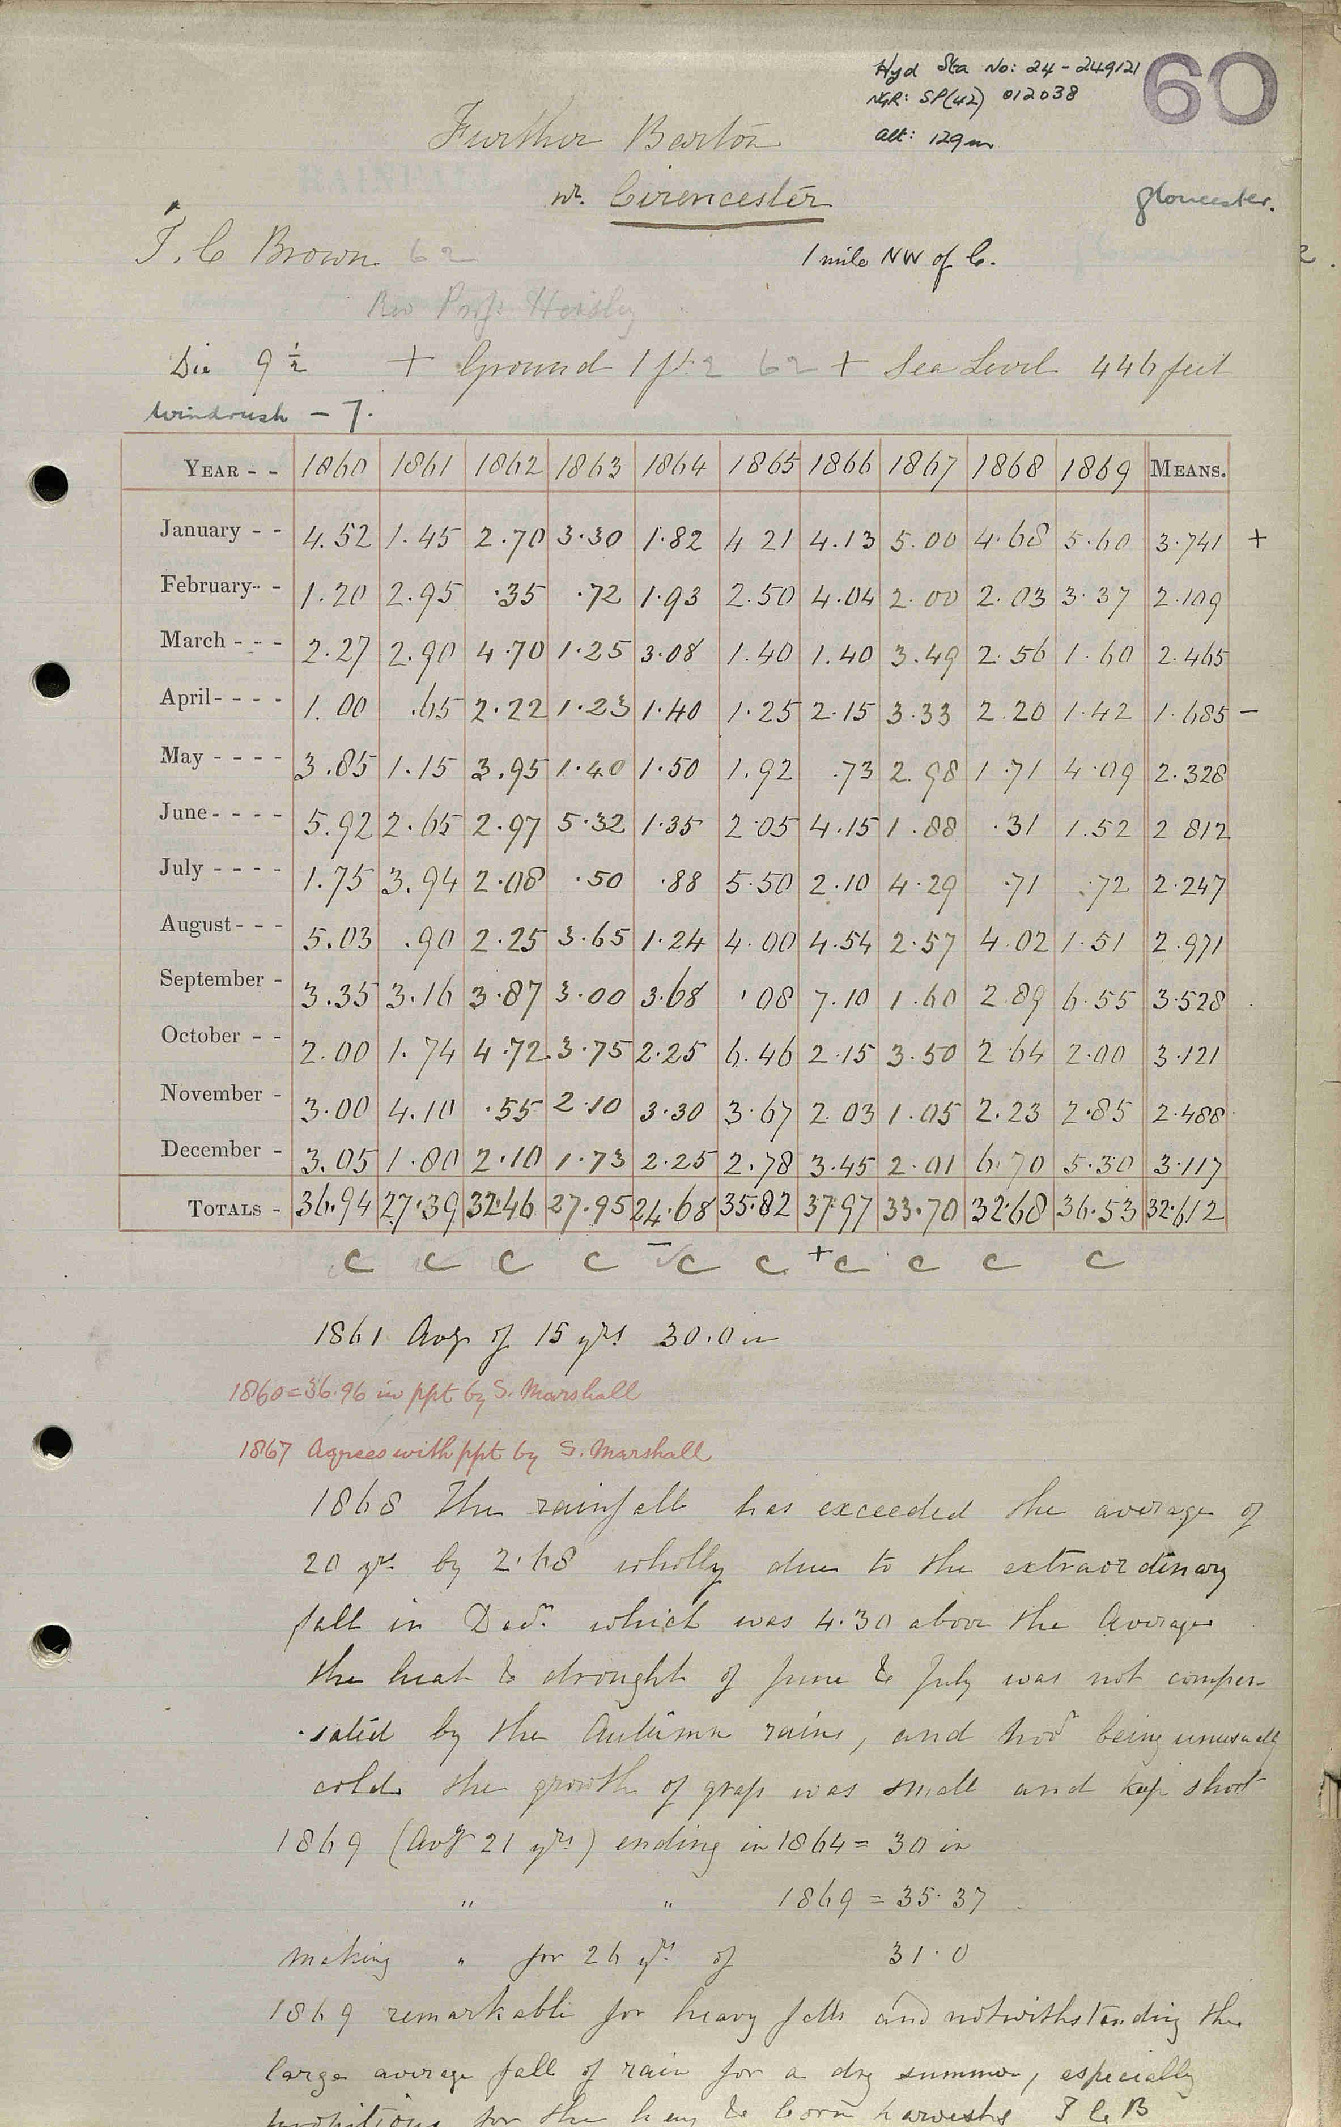 Hyd Sta No: 24-249121
60
NGR: SP(42) 012038
Further Barton
Alt: 129m
nr. Cirencester
Gloucester.
T. C Brown 62
1 mile NW of C.
Rev Profr
Die 9 1/2 + Ground 1 ft. 2 62 + Sea Level 446 feet
Windrush - 7.
YEAR - - 1860 1861 1862 1863 1864 1865 1866 1867 1868 1869 MEANS.
January - - 4.52 1.45 2.70 3.30 1.82 4 21 4.13 5.00 4.68 5.60 3.741 +
February - - 1.20 2.95 .35 .72 1.93 2.50 4.04 2.00 2.03 3.37 2.109
March - - - 2.27 2.90 4.70 1.25 3.08 1.40 1.40 3.49 2.56 1.60 2.465
April - - - - 1.00 .65 2.22 1.23 1.40 1.25 2.15 3.33 2.20 1.42 1.685 -
May - - - - 3.85 1.15 3.95 1.40 1.50 1.92 .73 2.98 1.71 4.09 2.328
June - - - - 5.92 2.65 2.97 5.32 1.35 2.05 4.15 1.88 .31 1.52 2 812
July - - - - 1.75 3.94 2.08 .50 .88 5.50 2.10 4.29 .71 .72 2.247
August - - - 5.03 .90 2.25 3.65 1.24 4.00 4.54 2.57 4.02 1.51 2.971
September - 3.35 3.16 3.87 3.00 3.68 .08 7.10 1.60 2.89 6.55 3.528
October - - 2.00 1.74 4.72 3.75 2.25 6.46 2.15 3.50 2 64 2.00 3.121
November - 3.00 4.10 .55 2.10 3.30 3.67 2 03 1.05 2.23 2.85 2.488
December - 3.05 1.80 2.10 1.73 2.25 2.78 3.45 2.01 6.70 5.30 3.117
TOTALS - 36.94 27.39 32.46 27.95 24.68 35.82 37.97 33.70 32.68 36.53 32.612
c c c c - c c + c c c c
1861 Avge of 15 yrs 30.0 in
1860 = 36.96 in ppt by S. Marshall
1867 Agrees with ppt by S. Marshall
1868 The rainfall has exceeded the average of
20 yrs by 2.68 wholly due to the extraordinary
fall in Decr. which was 4.30 above the Average
the heat & drought of June & July was not compen-
-sated by the Autumn rains, and Novr being unusually
cold the growth of grass was small and kept short
1869 (Avg 21 yrs) ending in 1864 = 30 in
" " 1869 = 35.37
making " for 26 yrs of 31.0
1869 remarkable for heavy falls and notwithstanding the
large average fall of rain for a dry summer, especially
propitious for the hay & Corn harvests T C B